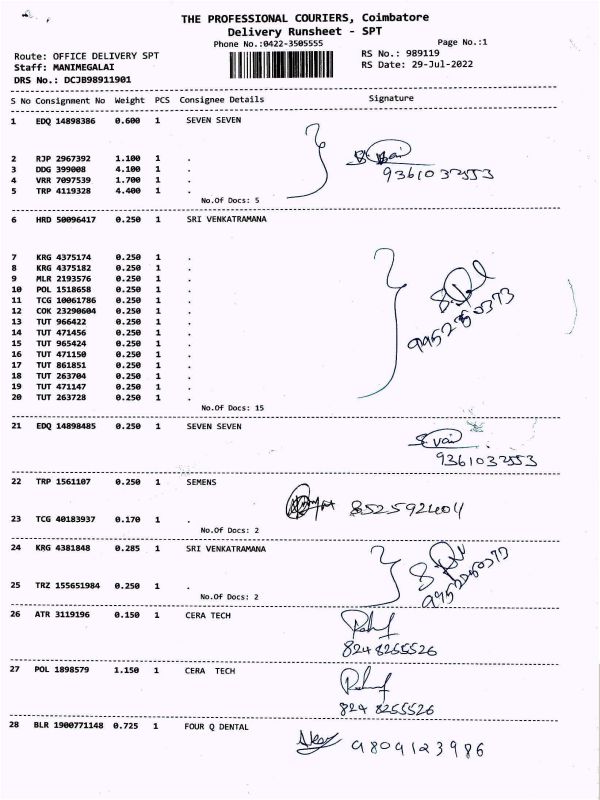 THE PROFESSIONAL COURIERS, Coimbatore
Delivery Runsheet - SPT
Phone No.:0422-3505555
Page No.:1
Route: OFFICE DELIVERY SPT
RS No.: 989119
Staff: MANIMEGALAI
RS Date: 29-Jul-2022
DRS No.: DCJB98911901
S No Consignment No Weight PCS Consignee Details Signature
1 EDQ 14898386 0.600 1 SEVEN SEVEN
2 RJP 2967392 1.100 1 .
3 DDG 399008 4.100 1 .
9361032553
4 VRR 7097539 1.700 1 .
5 TRP 4119328 4.400 1 .
No.Of Docs: 5
6 HRD 50096417 0.250 1 SRI VENKATRAMANA
7 KRG 4375174 0.250 1 .
8 KRG 4375182 0.250 1 .
9 MLR 2193576 0.250 1 .
10 POL 1518658 0.250 1 .
11 TCG 10061786 0.250 1 .
12 COK 23290604 0.250 1 .
13 TUT 966422 0.250 1 .
14 TUT 471456 0.250 1 .
15 TUT 965424 0.250 1 .
16 TUT 471150 0.250 1 .
17 TUT 861851 0.250 1 .
18 TUT 263704 0.250 1 .
19 TUT 471147 0.250 1 .
20 TUT 263728 0.250 1 .
No.Of Docs: 15
21 EDQ 14898485 0.250 1 SEVEN SEVEN
9361032553
22 TRP 1561107 0.250 1 SEMENS
8525924404
23 TCG 40183937 0.170 1 .
No.Of Docs: 2
24 KRG 4381848 0.285 1 SRI VENKATRAMANA
25 TRZ 155651984 0.250 1 .
No.Of Docs: 2
26 ATR 3119196 0.150 1 CERA TECH
824 8255526
27 POL 1898579 1.150 1 CERA TECH
824 8255526
28 BLR 1900771148 0.725 1 FOUR Q DENTAL
9809123986